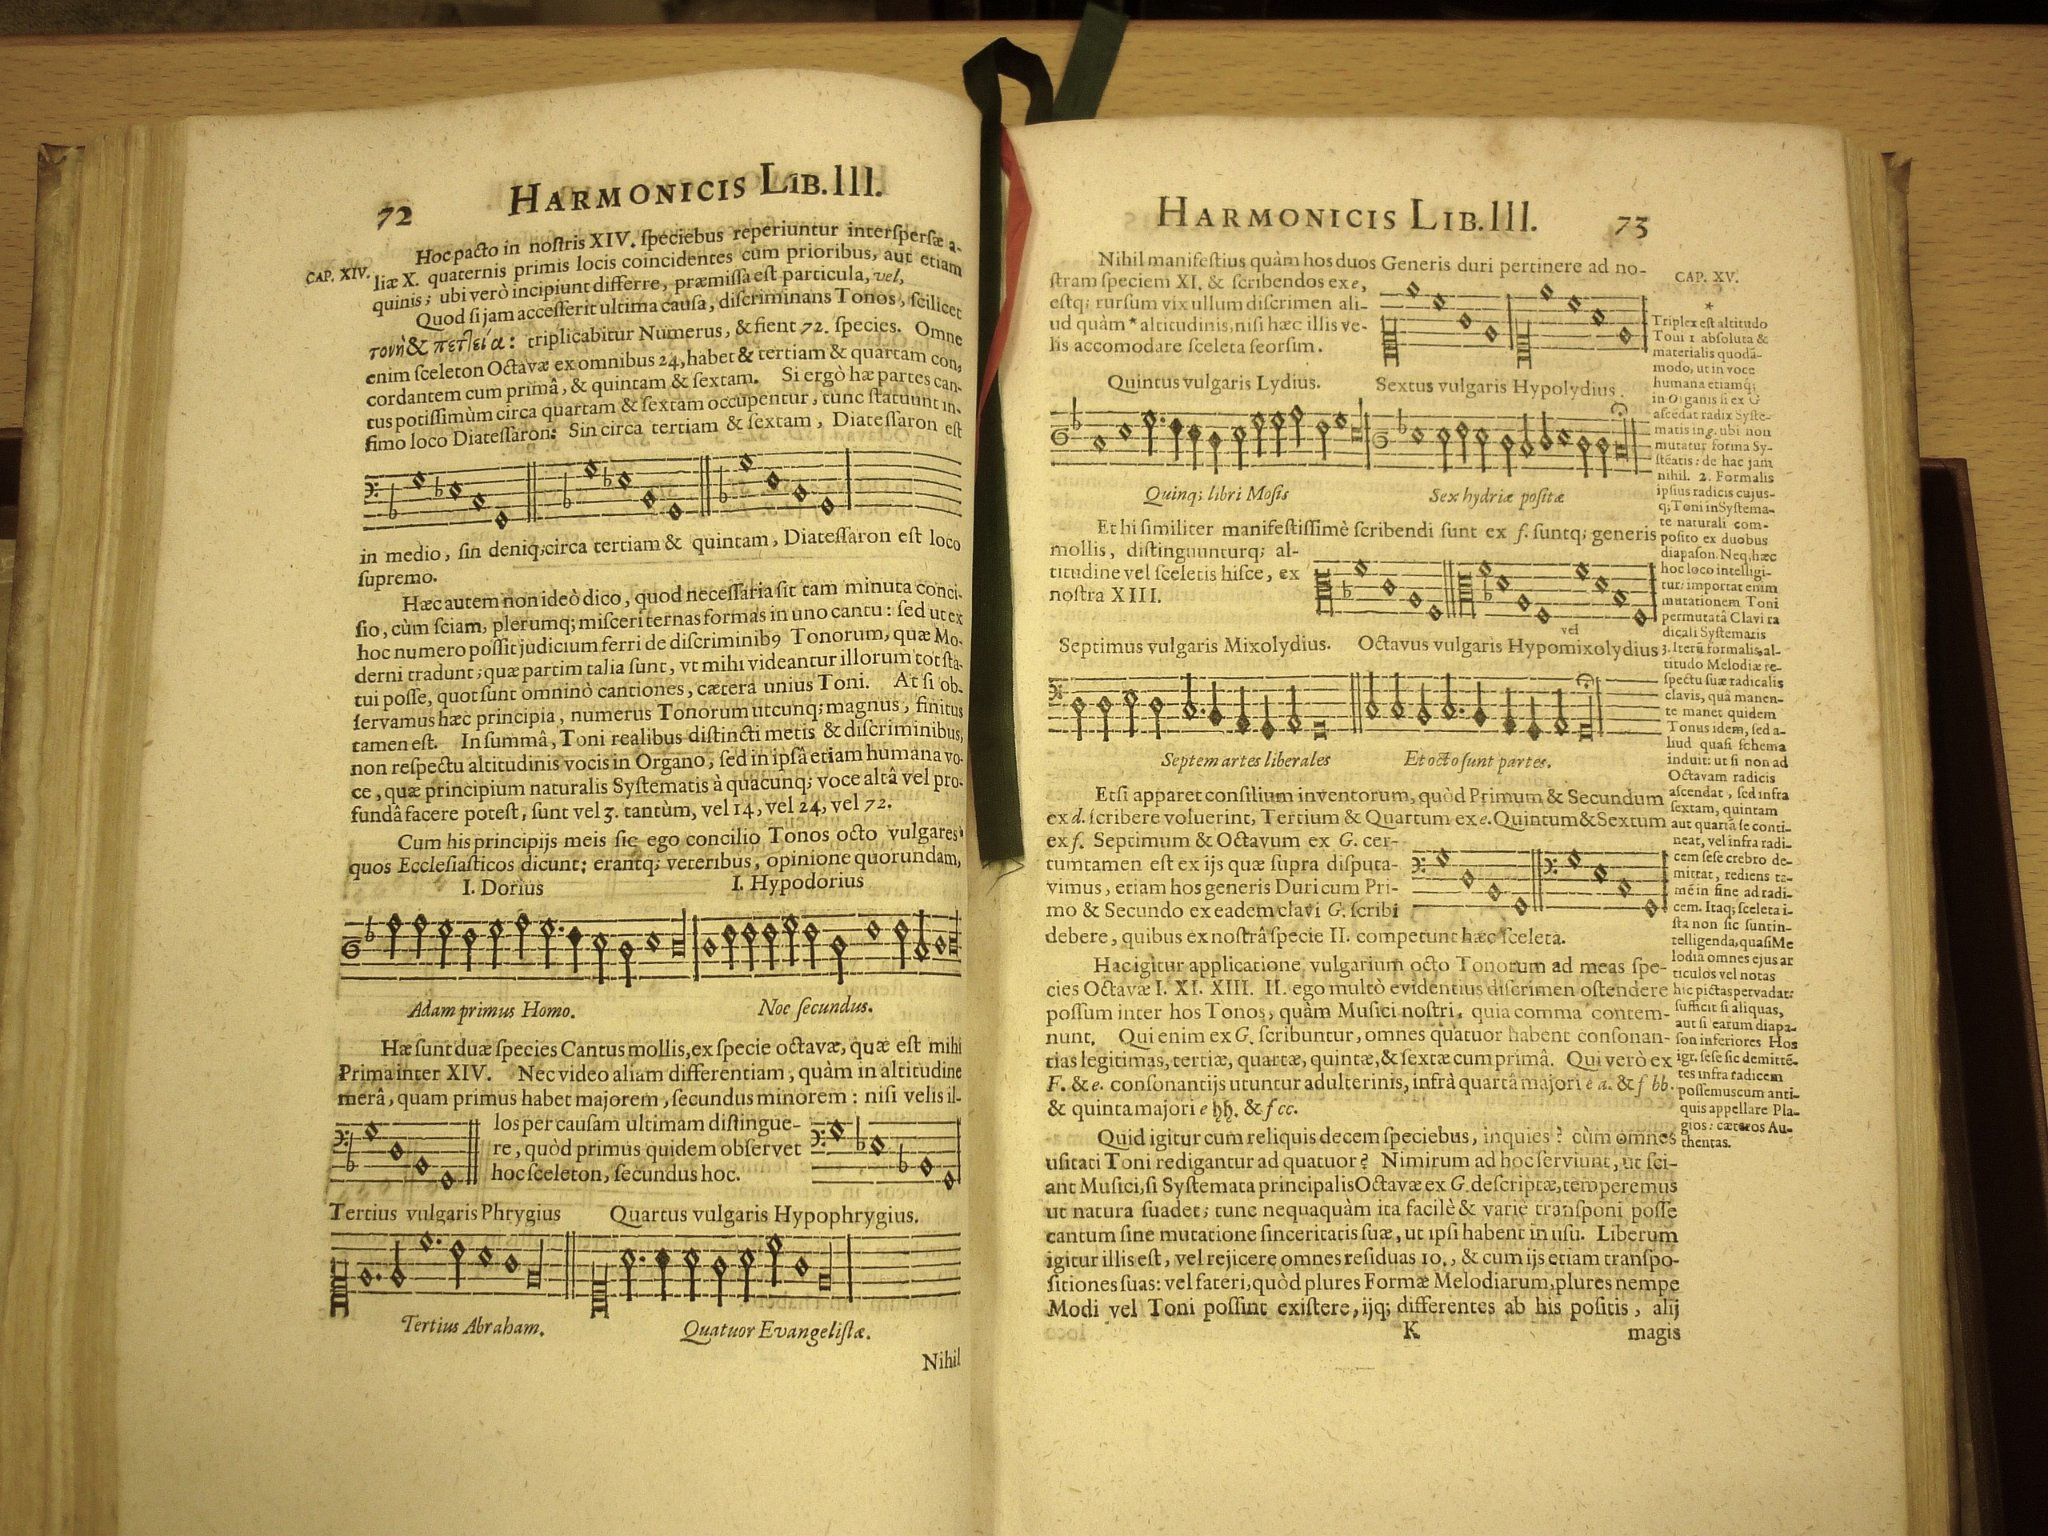 72
HARMONICIS LIB. III.
CAP. XIV.
Hoc pacto in nostris XIV. ſpeciebus reperiuntur interſperſæ a-
liæ X. quaternis primis locis coincidentes cum prioribus, aut etiam
quinis; ubi verò incipiunt differre, præmiſſa est particula, vel,
Quod ſi jam acceſſerit ultima cauſa, diſcriminans Tonos, ſcilicet
τονὴ & πεττεία: triplicabitur Numerus, & fient 72. ſpecies. Omne
enim ſceleton Octavæ ex omnibus 24, habet & tertiam & quartam con,
cordantem cum primâ, & quintam & ſextam. Si ergò hæ partes can-
tus potiſſimùm circa quartam & ſextam occupentur, tunc ſtatuunt in-
fimo loco Diateſſaron: Sin circa tertiam & ſextam, Diateſſaron eſt
in medio, ſin deniq; circa tertiam & quintam, Diateſſaron eſt loco
ſupremo.
Hæc autem non ideò dico, quod neceſſaria ſit tam minuta conci-
ſio, cùm ſciam, plerumq; miſceri ternas formas in uno cantu: ſed ut ex
hoc numero poſſit judicium ferri de diſcriminib9 Tonorum, quæ Mo-
derni tradunt; quæ partim talia ſunt, vt mihi videantur illorum tot ſta-
tui poſſe, quot ſunt omninò cantiones, cætera unius Toni. At ſi ob-
ſervamus hæc principia, numerus Tonorum utcunq; magnus, finitus
tamen eſt. In ſummâ, Toni realibus diſtincti metis & diſcriminibus,
non reſpectu altitudinis vocis in Organo, ſed in ipſâ etiam humana vo-
ce, quæ principium naturalis Syſtematis à quacunq; voce altâ vel pro-
fundâ facere poteſt, ſunt vel 3. tantùm, vel 14, vel 24, vel 72.
Cum his principijs meis ſic ego concilio Tonos octo vulgares
quos Eccleſiaſticos dicunt; erantq; veteribus, opinione quorundam,
I. Dorius I. Hypodorius
Adam primus Homo. Noe ſecundus.
Hæ ſunt duæ ſpecies Cantus mollis, ex ſpecie octavæ, quæ eſt mihi
Prima inter XIV. Nec video aliam differentiam, quàm in altitudine
merâ, quam primus habet majorem, ſecundus minorem: niſi velis il-
los per cauſam ultimam diſtingue-
re, quòd primus quidem obſervet
hoc ſceleton, ſecundus hoc.
Tertius vulgaris Phrygius Quartus vulgaris Hypophrygius.
Tertius Abraham. Quatuor Evangeliſtæ.
Nihil
HARMONICIS LIB. III. 73
Nihil manifeſtius quàm hos duos Generis duri pertinere ad no-
ſtram ſpeciem XI. & ſcribendos ex e,
eſtq; rurſum vix ullum diſcrimen ali-
ud quàm * altitudinis, niſi hæc illis ve-
lis accomodare ſceleta ſeorſim.
Quintus vulgaris Lydius. Sextus vulgaris Hypolydius.
Quinq; libri Moſis Sex hydriæ poſitæ
Et hi ſimiliter manifeſtiſſimè ſcribendi ſunt ex f. ſuntq; generis
mollis, diſtinguunturq; al-
titudine vel ſceletis hiſce, ex
noſtra XIII.
vel
Septimus vulgaris Mixolydius. Octavus vulgaris Hypomixolydius
Septem artes liberales Et octo ſunt partes.
Etſi apparet conſilium inventorum, quòd Primum & Secundum
ex d. ſcribere voluerint, Tertium & Quartum ex e. Quintum & Sextum
ex f. Septimum & Octavum ex G. cer-
tum tamen eſt ex ijs quæ ſupra diſputa-
vimus, etiam hos generis Duri cum Pri-
mo & Secundo ex eadem clavi G. ſcribi
debere, quibus ex noſtrâ ſpecie II. competunt hæc ſceleta.
Hac igitur applicatione vulgarium octo Tonorum ad meas ſpe-
cies Octavæ I. XI. XIII. II. ego multò evidentius diſcrimen oſtendere
poſſum inter hos Tonos, quàm Muſici noſtri, quia comma contem-
nunt. Qui enim ex G. ſcribuntur, omnes quatuor habent conſonan-
tias legitimas, tertiæ, quartæ, quintæ, & ſextæ cum primâ. Qui verò ex
F. & e. conſonantijs utuntur adulterinis, infrà quartâ majori e a. & f bb.
& quinta majori e ♮♮. & f cc.
Quid igitur cum reliquis decem ſpeciebus, inquies? cùm omnes
uſitati Toni redigantur ad quatuor? Nimirum ad hoc ſerviunt, ut ſci-
ant Muſici, ſi Syſtemata principalis Octavæ ex G. deſcriptæ, temperemus
ut natura ſuadet; tunc nequaquàm ita facilè & variè tranſponi poſſe
cantum ſine mutatione ſinceritatis ſuæ, ut ipſi habent in uſu. Liberum
igitur illis eſt, vel rejicere omnes reſiduas 10., & cum ijs etiam tranſpo-
ſitiones ſuas: vel fateri, quòd plures Formæ Melodiarum, plures nempe
Modi vel Toni poſſint exiſtere, ijq; differentes ab his poſitis, alij
K magis
CAP. XV.
*
Triplex eſt altitudo
Toni 1 abſoluta &
materialis quodã-
modo, ut in voce
humana etiamq;
in Organis ſi ex G
aſcẽdat radix Syſte-
matis in g. ubi non
mutatur forma Sy-
ſtẽatis: de hac jam
nihil. 2. Formalis
ipſius radicis cujus-
q; Toni in Syſtema-
te naturali com-
poſito ex duobus
diapaſon. Neq; hæc
hoc loco intelligi-
tur: importat enim
mutationem Toni
permutatâ Clavi ra
dicali Syſtematis
3. Iterũ formalis, al-
titudo Melodiæ re-
ſpectu ſuæ radicalis
clavis, quâ manen-
te manet quidem
Tonus idem, ſed a-
liud quaſi ſchema
induit: ut ſi non ad
Octavam radicis
aſcendat, ſed infra
ſextam, quintam
aut quartã ſe conti-
neat, vel infra radi-
cem ſeſe crebro de-
mittat, rediens ta-
mẽ in fine ad radi-
cem. Itaq; ſceleta i-
ſta non ſic ſunt in-
telligenda, quaſi Me
lodia omnes ejus ar
ticulos vel notas
hic pictas pervadat:
ſufficit ſi aliquas,
aut ſi earum diapa-
ſon inferiores Hos
igr. ſeſe ſic demittẽ-
tes infra radicem
poſſemus cum anti-
quis appellare Pla-
gios: cæteros Au-
thentas.